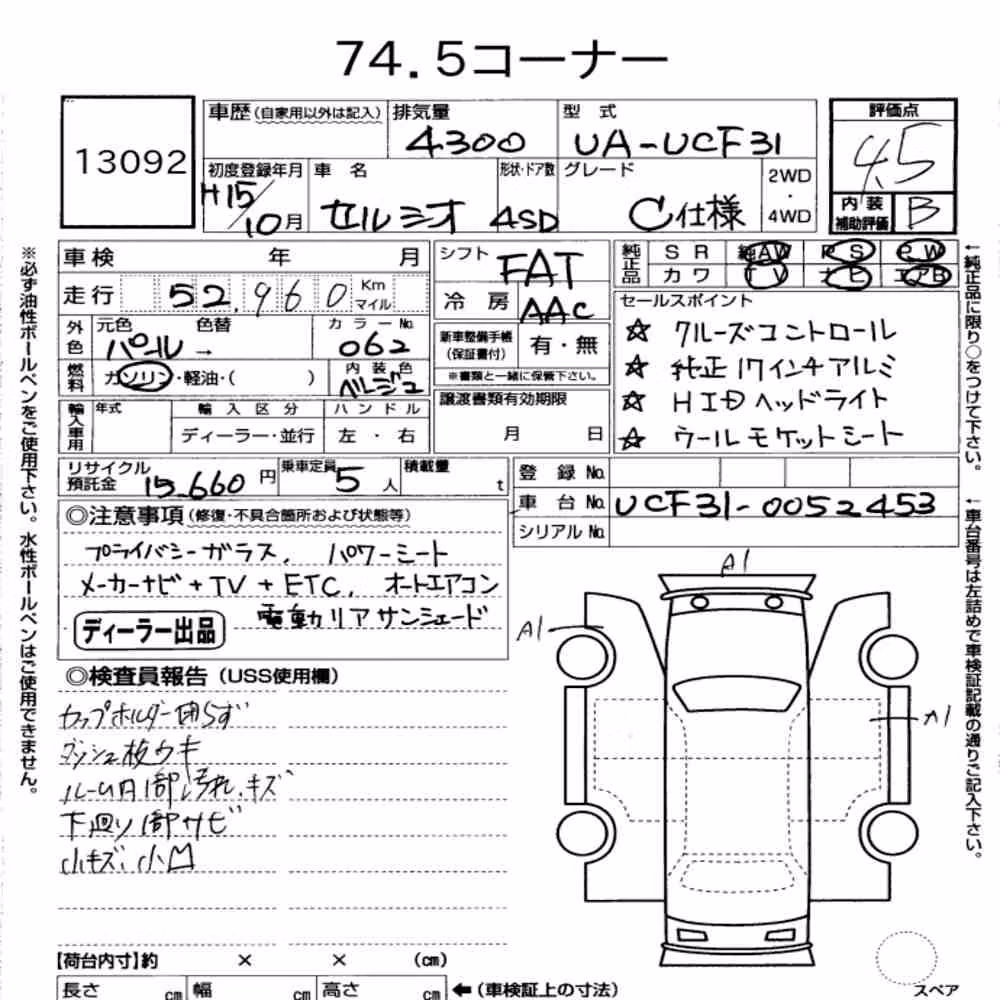 74.5コーナー
13092
車歴(自家用以外は記入) 排気量 4300 型式 UA-UCF31
評価点 4.5
初度登録年月 H15/10月 車名 セルシオ 形状・ドア数 4SD グレード C仕様 2WD・4WD
内装補助評価 B
車検 年 月
走行 52,960 Km マイル
シフト FAT
冷房 AAC
純正品 SR 純AW PS PW
カワ TV ナビ エアB
外色 元色 パール 色替 → カラーNo. 062
燃料 ガソリン・軽油・( ) 内装色 ベージュ
新車整備手帳(保証書付) 有・無
※書類と一緒に保管下さい。
セールスポイント
☆ クルーズコントロール
☆ 純正17インチアルミ
☆ HIDヘッドライト
☆ ウールモケットシート
輸入車用 年式 輸入区分 ハンドル
ディーラー・並行 左・右
譲渡書類有効期限
月 日
リサイクル預託金 15,660円 乗車定員 5人 積載量 t
登録No.
車台No. UCF31-0052453
シリアルNo.
◎注意事項(修復・不具合箇所および状態等)
プライバシーガラス、パワーシート
メーカーナビ+TV+ETC、オートエアコン
電動リアサンシェード
ディーラー出品
◎検査員報告(USS使用欄)
カップホルダー閉らず
ダッシュ板ウキ
ルーム内1部汚れ、キズ
下廻り1部サビ
小キズ、小凹
A1
A1
A1
【荷台内寸】約 × × (cm)
長さ cm 幅 cm 高さ cm ←(車検証上の寸法)
スペア
※必ず油性ボールペンをご使用下さい。水性ボールペンはご使用できません。
←純正品に限り○をつけて下さい。
←車台番号は左詰めで車検証記載の通りご記入下さい。